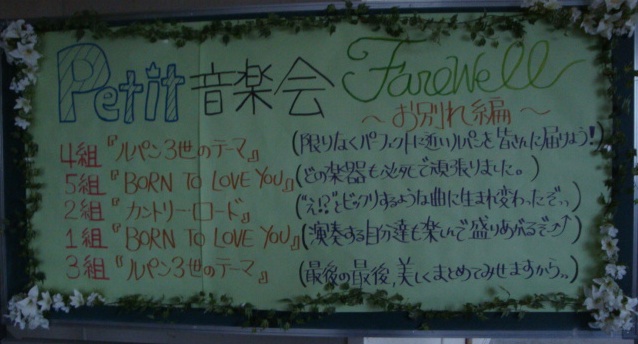 Petit 音楽会 Farewell
～お別れ編～
4組『ルパン3世のテーマ』(限りなくパーフェクトに近いルパンを皆さんに届けよう!)
5組『BORN TO LOVE YOU』(どの楽器も必死で頑張りました。)
2組『カントリーロード』("え!?"とビックリするような曲に生まれ変わったぞっ)
1組『BORN TO LOVE YOU』(演奏する自分達も楽しいで盛りあがるぞ⤴⤴)
3組『ルパン3世のテーマ』(最後の最後、美しくまとめてみせますから,,)